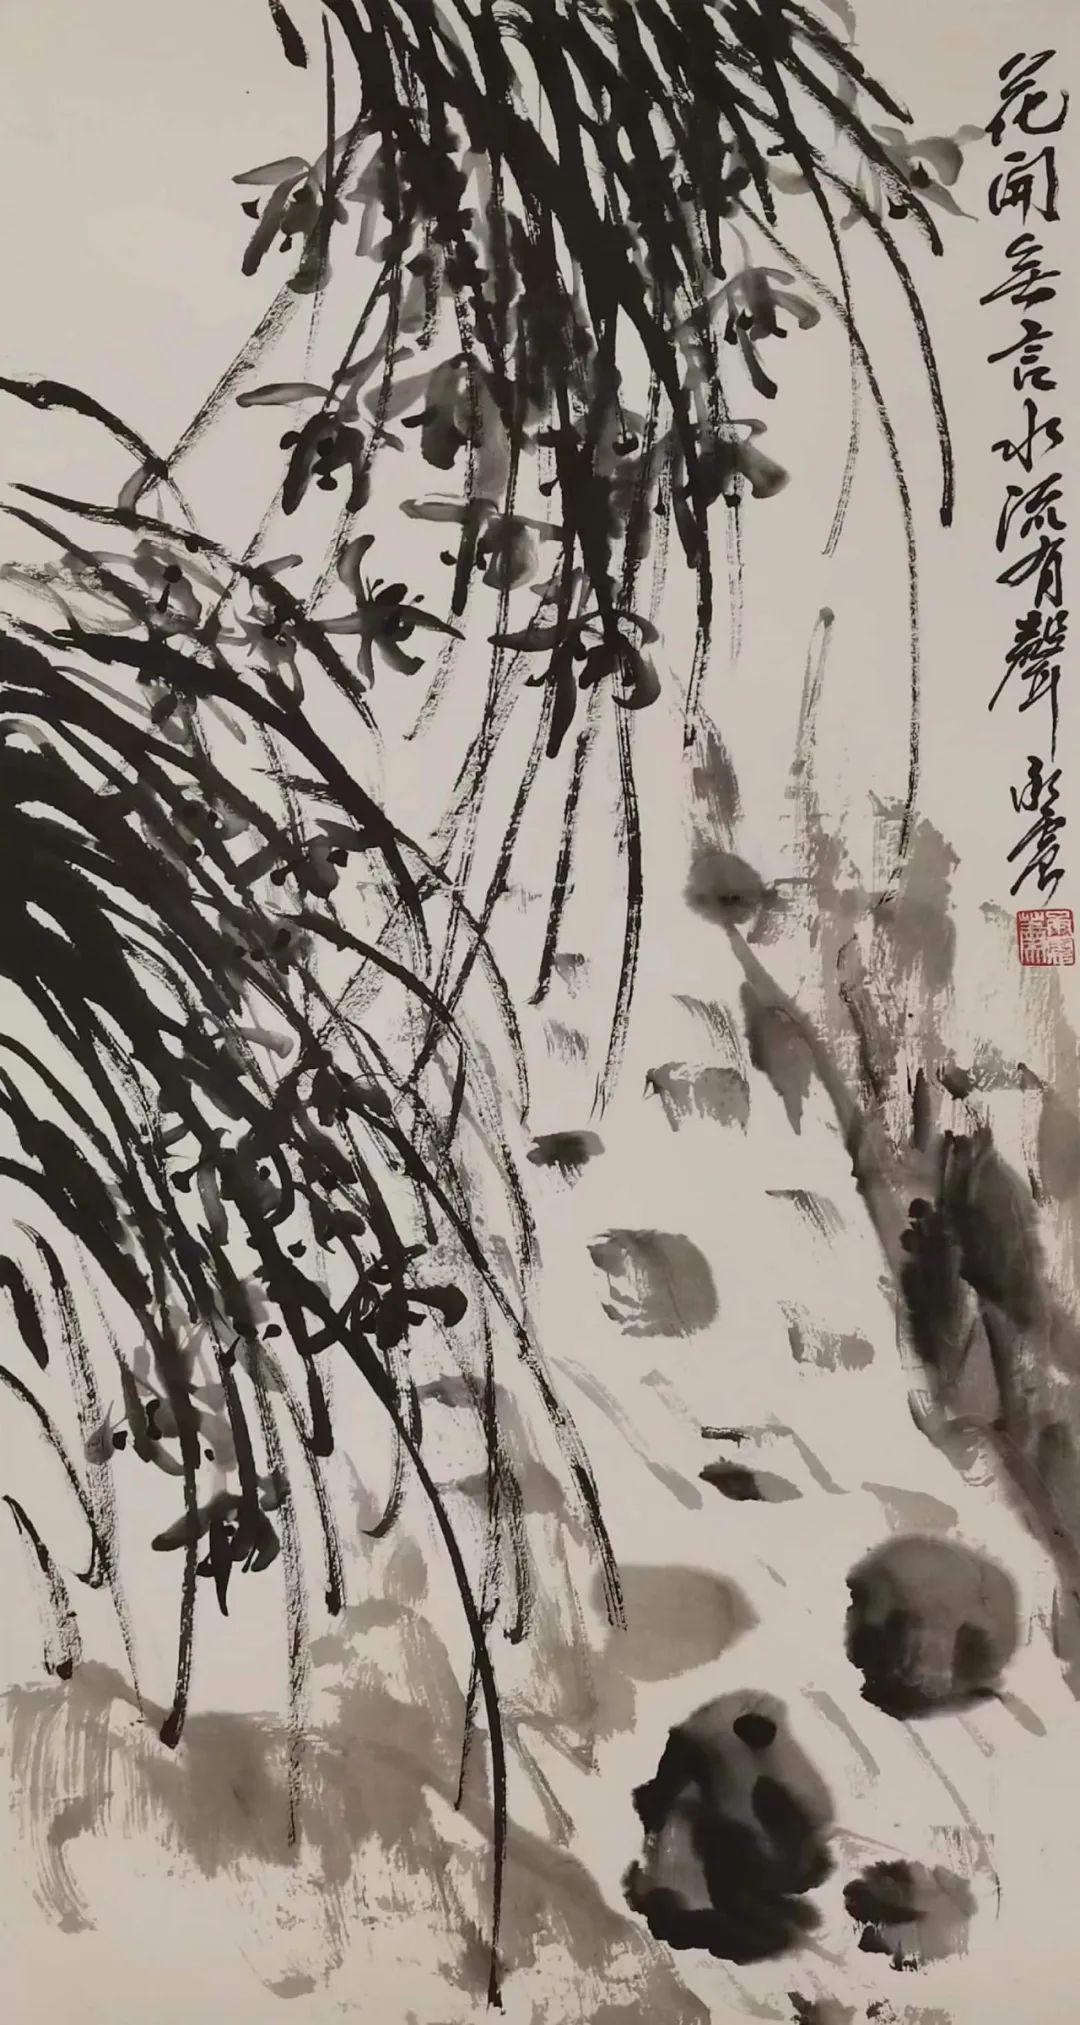 花開無言水流有聲